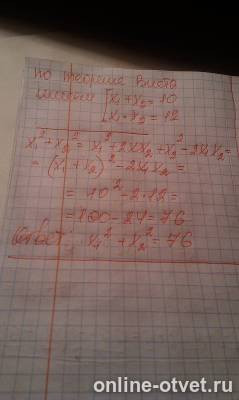 по теореме Виета
имеем [x₁ + x₂ = 10
x₁ · x₂ = 12
x₁² + x₂² = x₁² + 2x₁x₂ + x₂² - 2x₁x₂ =
= (x₁ + x₂)² - 2x₁x₂ =
= 10² - 2·12 =
= 100 - 24 = 76
Ответ: x₁² + x₂² = 76
online-otvet.ru